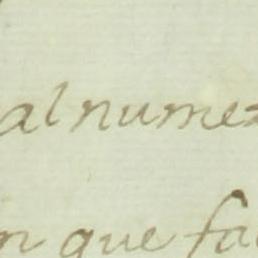 al nume
n que fa